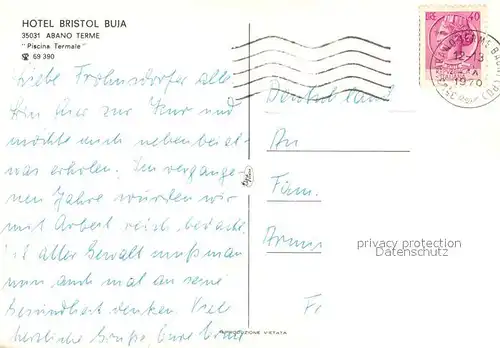 HOTEL BRISTOL BUJA
35031 ABANO TERME
"Piscina Termale"
☎ 69 390
Liebe Frohnsdorfer alle
bin hier zur Kur und
möchte mich nebenbei et-
was erholen. Im vergange-
nen Jahre wurden wir
mit Arbeit reich bedacht.
Mit aller Gewalt muß man
nun auch mal an seine
Gesundheit denken. Viele
herzliche Grüße Eure
40
1970
Deutschland
An
Firm.
privacy protection
Datenschutz
Fr
RIPRODUZIONE VIETATA